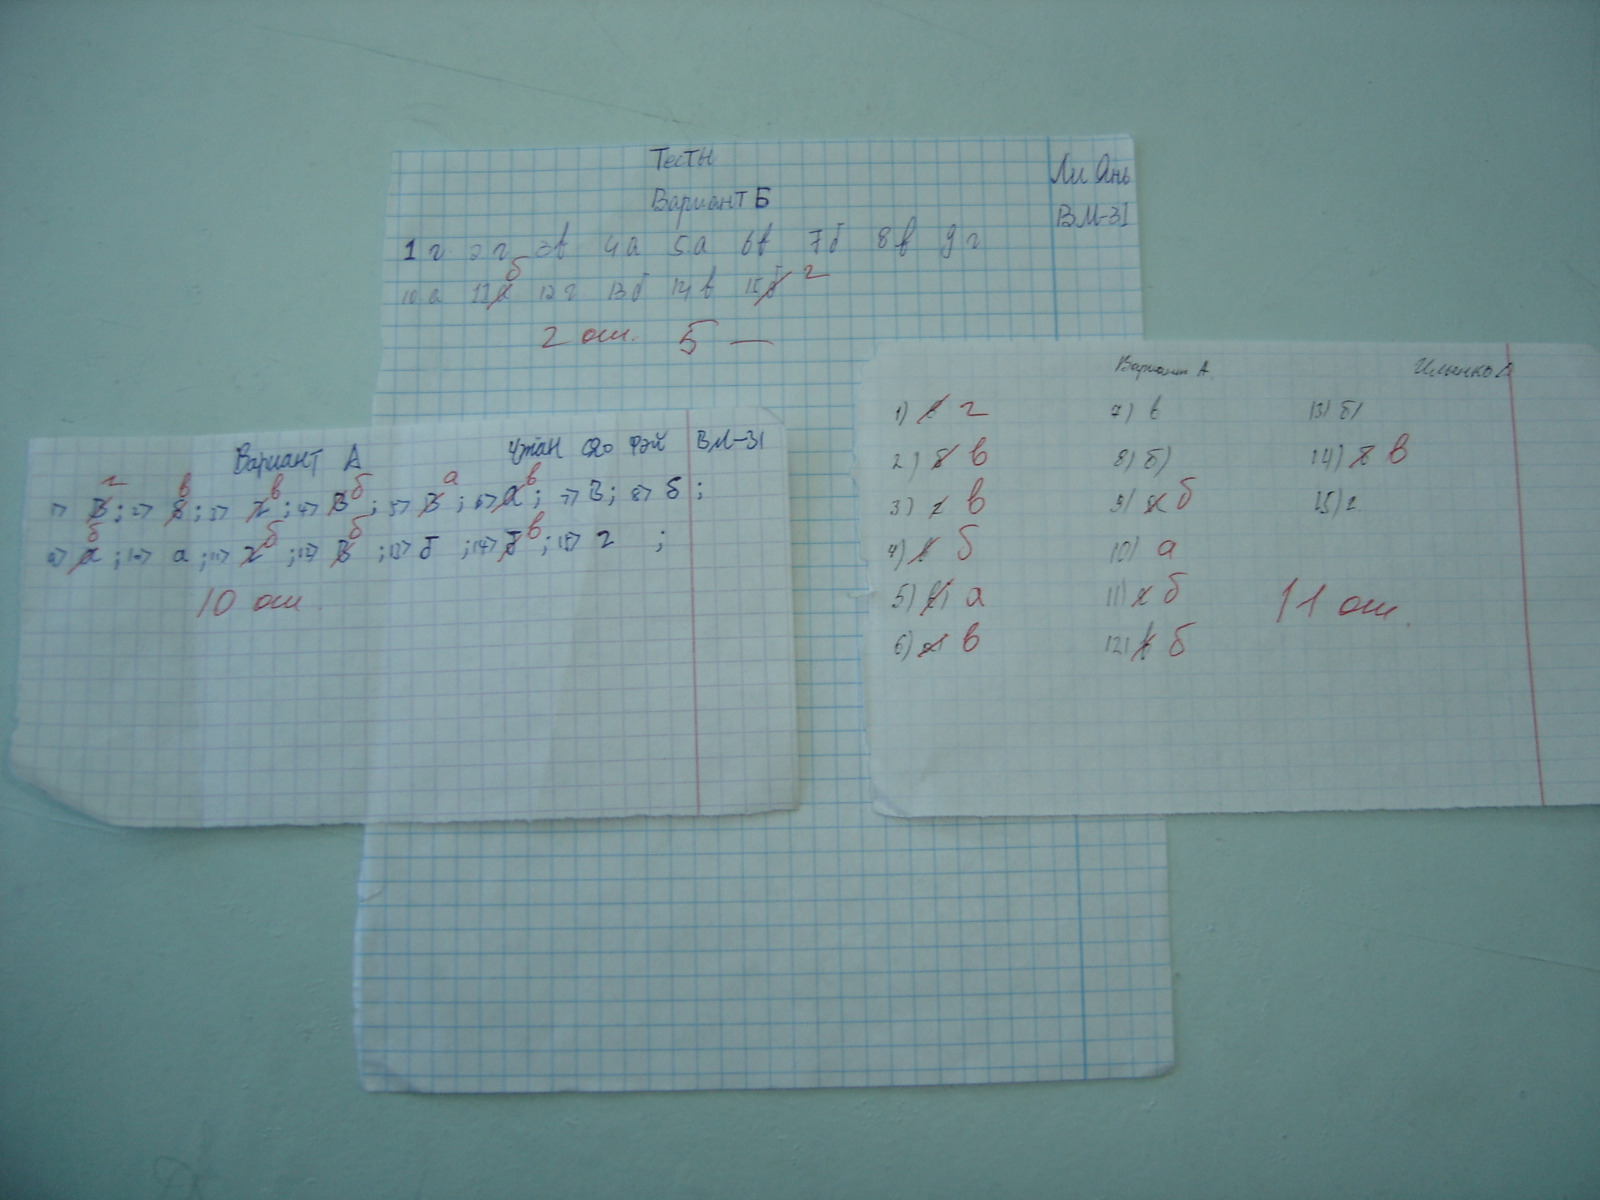 Тесты
Ли Ань
Вариант Б
ВМ-31
1 г 2 г 3в 4а 5а 6в 7б 8в 9г
10а 11 б 12г 13б 14в 15б г
2 ош. 5 —
Вариант А Чжан Сяо Фэй ВМ-31
1) В г; 2) в; 3) г в; 4) В б; 5) В а; 6) а в; 7) В; 8) б;
9) а б; 10) а; 11) г б; 12) В б; 13) б; 14) б в; 15) г;
10 ош
Вариант А.
1) в г 7) в 13) б)
2) в 8) б) 14) в
3) г в 9) б 15) г
4) в б 10) а
5) а 11) б
11 ош.
6) в 12) в б